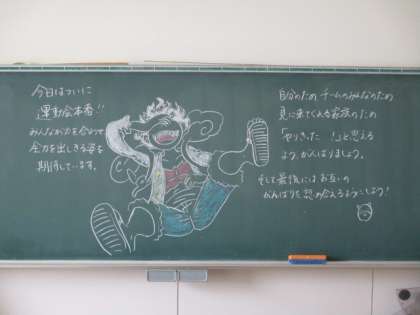 今日はついに
運動会本番!!
みんなが力を合わせ
全力を出しきる姿を
期待しています。
自分のため チームのみんなのため
見に来てくれる家族のため
「やりきった!」と思える
よう、がんばりましょう。
そして最後には お互いの
がんばりを